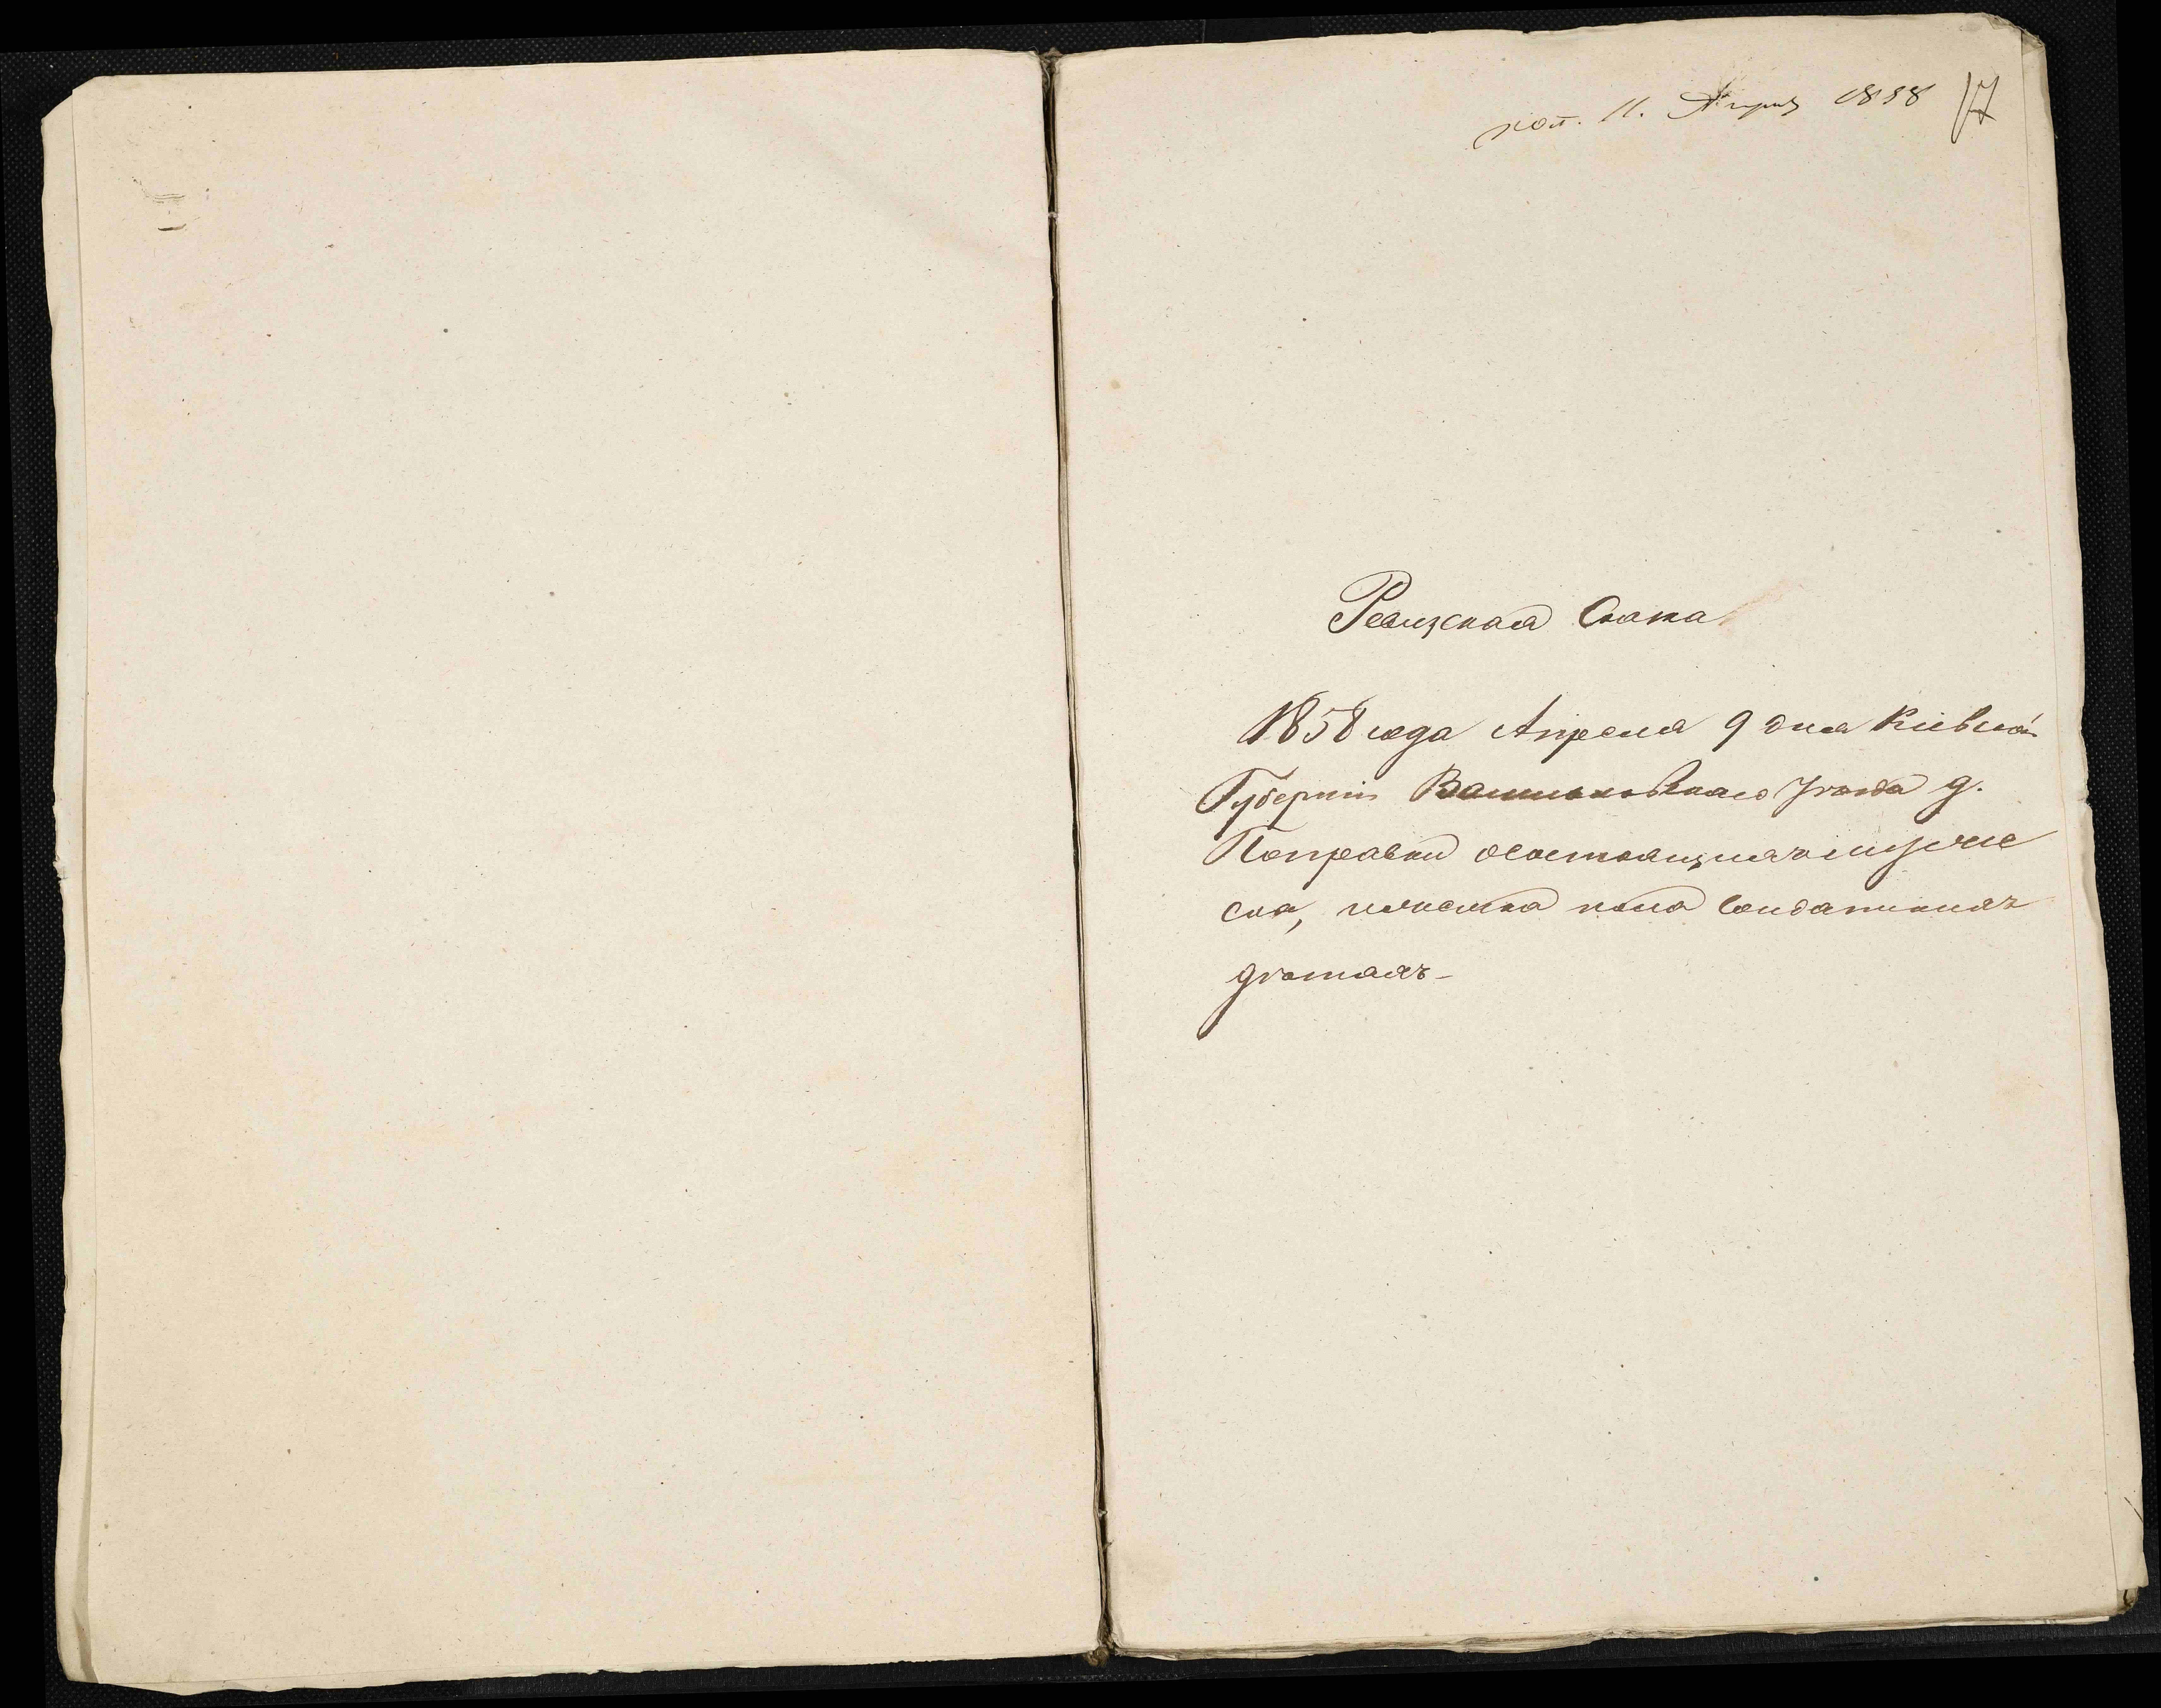 пол. 11. Апрѣл 1858 17
Ревизская Сказка
1858 года Апреля 9 дня Кіевской
Губерніи Васильковскаго Уѣзда д.
Поправки о состоящихъ мужес
ска, женска пола солдатскихъ
дѣтяхъ